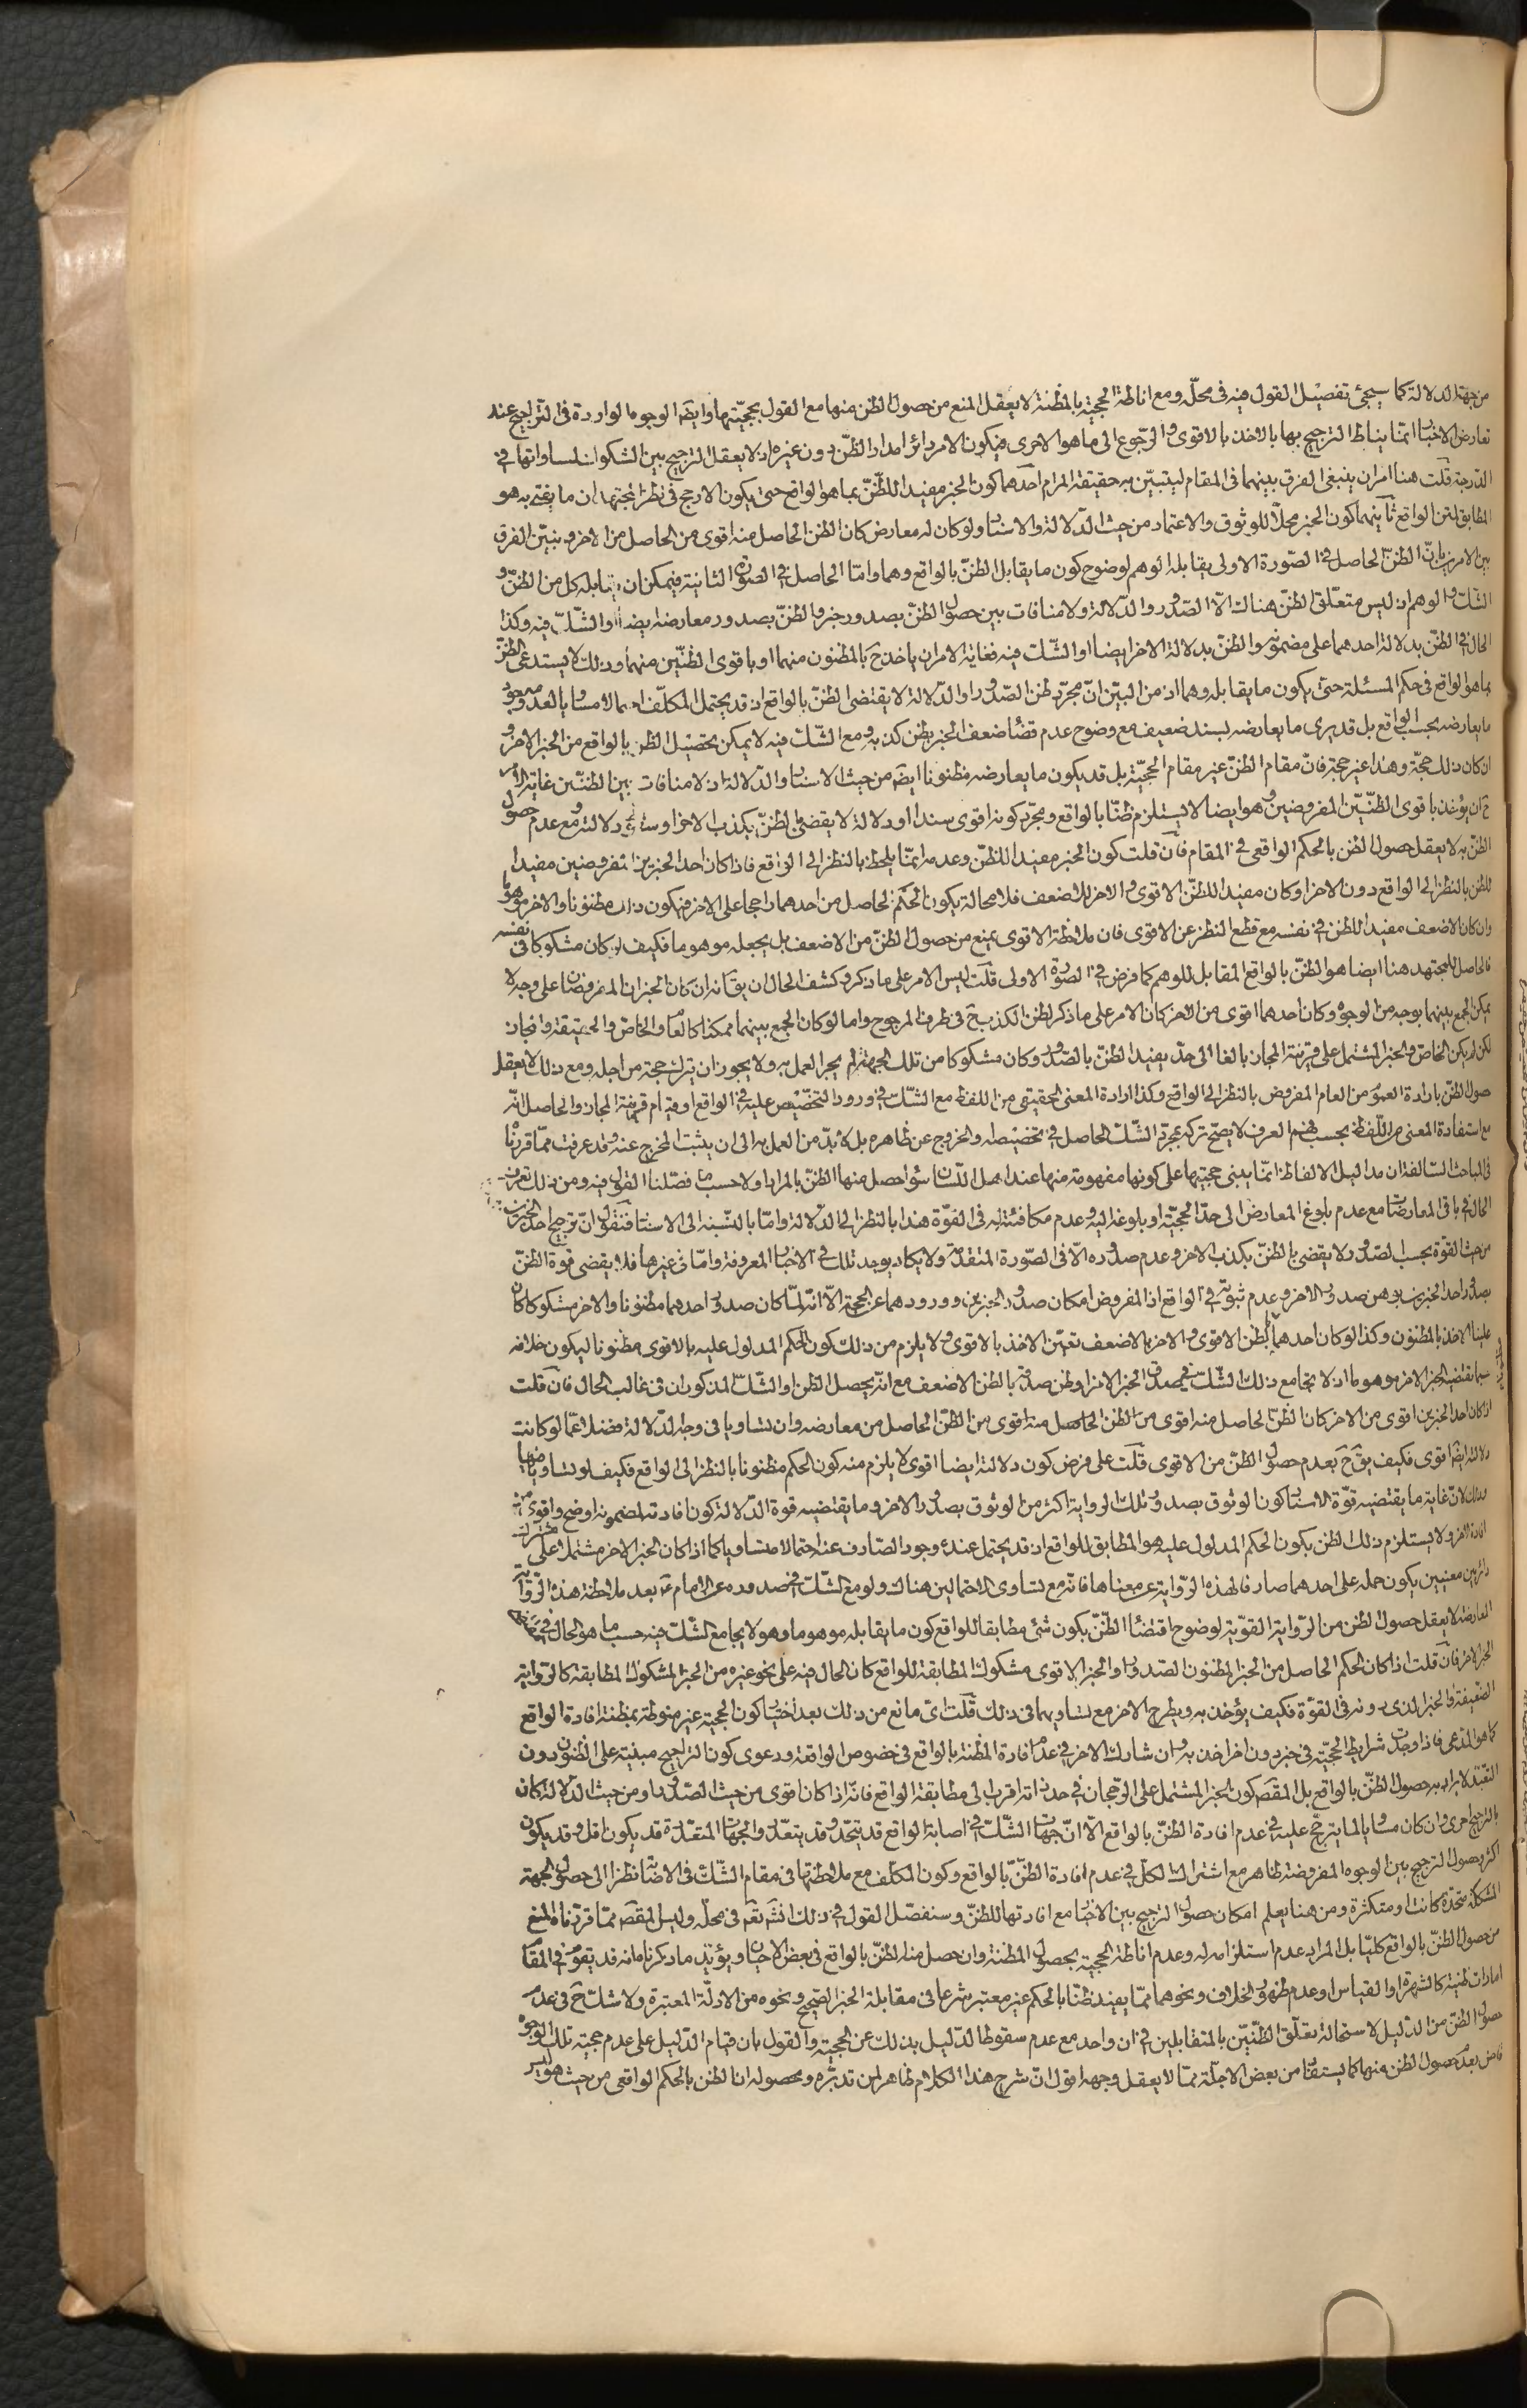 من جهة الدلالة كما سيجئ تفصيل القول فيه فى محلّه ومع اناطة الحجية بالمظنة لا يعقل المنع من حصول الظن منها مع القول بحجيّتها وايضا الوجوه الواردة فى التراجيح عند
تعارض الاخبار انما يناط الترجيح بها بالاخذ بالاقوى والرّجوع الى ما هو الاحرى فيكون الامر دائرا مدار الظنّ دون غيره اذ لا يعقل الترجيح بين الشكوك لمساواتها فى
الدّرجة قلت هنا امران ينبغى الفرق بينهما فى المقام ليتبيّن به حقيقة المرام احدهما كون الخبر مفيدا للظّنّ بما هو الواقع حتى يكون الارجح فى نظر المجتهد ان ما يفتى به هو
المطابق لمتن الواقع ثانيهما كون الخبر محلّا للوثوق والاعتماد من حيث الدّلالة والاسناد ولو كان له معارض كان الظن الحاصل منه اقوى من الحاصل من الاخر ويتبيّن الفرق
بين الامرين بانّ الظنّ الحاصل فى الصّورة الاولى يقابله الوهم لوضوح كون ما يقابل الظنّ بالواقع وهما وامّا الحاصل فى الصورة الثانية فيمكن ان يقابله كل من الظنّ و
الشّك والوهم اذ ليس متعلّق الظنّ هناك الّا الصّدور والدّلالة ولا منافات بين حصول الظنّ بصدور خبر والظنّ بصدور معارضه ايضا او الشّك فيه وكذا
الحال فى الظنّ بدلالة احدهما على مضمونه والظنّ بدلالة الاخر ايضا او الشّك فيه فغاية الامر ان ياخذ ح بالمظنون منهما او باقوى الظنّين منهما وذلك لا يستدعى الظنّ
بما هو الواقع فى حكم المسئلة حتى يكون ما يقابله وهما اذ من البيّن انّ مجرّد ظن الصّدور او الدّلالة لا يقتضى الظنّ بالواقع اذ قد يحتمل المكلّف احتمالا مساويا لعدمه وجود
ما يعارضه بحسب الواقع بل قد يرى ما يعارضه بسند ضعيف مع وضوح عدم قضاء ضعف الخبر بظن كذبه ومع الشّك فيه لا يمكن تحصيل الظن بالواقع من الخبر الاخر و
ان كان ذلك حجّة وهذا غير حجة فانّ مقام الظنّ غير مقام الحجيّة بل قد يكون ما يعارضه مظنونا ايضا من حيث الاسناد والدّلالة اذ لا منافات بين الظنّين غاية الامر
ح ان يؤخذ باقوى الظنّيّن المفروضين وهو ايضا لا يستلزم ظنّا بالواقع ومجرّد كونه اقوى سندا او دلالة لا يقضى بالظنّ بكذب الاخر او سقوط دلالته ومع عدم حصول
الظنّ به لا يعقل حصول الظن بالحكم الواقعى فى المقام فان قلت كون الخبر مفيدا للظنّ وعدمه انمّا يلحظ بالنظر الى الواقع فاذا كان احد الخبرين المفروضين مفيدا
للظن بالنظر الى الواقع دون الاخر او كان مفيدا للظنّ الاقوى والاخر للاضعف فلا محالة يكون الحكم الحاصل من احدهما راجحا على الاخر فيكون ذلك مظنونا والاخر موهوما
وان كان الاضعف مفيدا للظن فى نفسه مع قطع النظر عن الاقوى فان ملاحظة الاقوى يمنع من حصول الظنّ من الاضعف بل يجعله موهوما فكيف لو كان مشكوكا فى نفسه
فالحاصل للمجتهد هنا ايضا هو الظنّ بالواقع المقابل للوهم كما فرض فى الصّورة الاولى قلت ليس الامر على ما ذكر وكشف الحال ان يقال انه ان كان الخبران المفروضان على وجه لا
يمكن الجمع بينهما بوجه من الوجوه وكان احدهما اقوى من الاخر كان الامر على ما ذكر لظن الكذب ح فى طرف المرجوح واما لو كان الجمع بينهما ممكنا كالعام والخاص والحقيقة والمجاز
لكن لم يكن الخاص والخبر المشتمل على قرينة المجاز بالغا الى حدّ يفيد الظنّ بالصّدور وكان مشكوكا من تلك الجهة لم يجز العمل به ولا يجوز ان يترك حجة من اجله ومع ذلك لا يعقل
حصول الظنّ بارادة العموم من العام المفروض بالنظر الى الواقع وكذا ارادة المعنى الحقيقى من اللفظ مع الشّك فى ورود التخصيص عليه فى الواقع او قيام قرينة المجاز والحاصل انّه
مع استفادة المعنى من اللّفظ بحسب فهم العرف لا يصحّ تركه بمجرّد الشّك الحاصل فى تخصيصه والخروج عن ظاهره بل لا بدّ من العمل به الى ان يثبت المخرج عنه وقد عرفت ممّا قررنا
فى المباحث السّالفة ان مداليل الالفاظ انمّا يبنى حجيتها على كونها مفهومة منها عند اهل اللّسان سواء حصل منها الظنّ بالمراد او لا حسب ما فصّلنا القول فيه ومن ذلك تعرف
الحال فى باقى المعارضات مع عدم بلوغ المعارض الى حدّ الحجيّة او بلوغه اليه وعدم مكافئته له فى القوّة هذا بالنظر الى الدّلالة وامّا بالنّسبة الى الاسناد فنقول انّ ترجيح احد الخبرين
من حيث القوّة بحسب الصّدور لا يقضى بالظنّ بكذب الاخر وعدم صدوره الّا فى الصّورة المتقدمة ولا يكاد يوجد تلك فى الاخبار المعروفة وامّا فى غيرها فلا يقضى قوة الظنّ
بصدور احد الخبرين بوهن صدور الاخر وعدم ثبوته فى الواقع اذ المفروض امكان صدور الخبرين وورودهما عن الحجة الّا انّه لمّا كان صدور احدهما مظنونا والاخر مشكوكا كان
علينا الاخذ بالمظنون وكذا لو كان احدهما بالظن الاقوى والاخر بالاضعف تعيّن الاخذ بالاقوى ولا يلزم من ذلك كون الحكم المدلول عليه بالاقوى مظنونا ليكون خلافه
ممّا يقتضيه الخبر الاخر موهوما اذ لا يجامع ذلك الشّك فى صدق الخبر الاخر او ظن صدقه بالظن الاضعف مع انّه يحصل الظن او الشّك المذكوران فى غالب الحال فان قلت
اذ كان احد الخبرين اقوى من الاخر كان الظنّ الحاصل منه اقوى من الظن الحاصل منه اقوى من الظنّ الحاصل من معارضه وان تساويا فى وجه الدّلالة فضلا عمّا لو كانت
دلالته ايضا اقوى فكيف يق ح بعدم حصول الظنّ من الاقوى قلت على فرض كون دلالته ايضا اقوى لا يلزم منه كون الحكم مظنونا بالنظر الى الواقع فكيف لو تساويا فيها
لانّ غاية ما يقتضيه قوّة الاسناد كون الوثوق بصدور تلك الرواية اكثر من الوثوق بصدور الاخر وما يقتضيه قوة الدّلالة كون افادته لمضمونه اوضح واقوى من
افادة الاخر ولا يستلزم ذلك الظن بكون الحكم المدلول عليه هو المطابق للواقع اذ قد يحتمل عنده وجود الصّارف عنه احتمالا متساويا كما اذا كان الخبر الاخر مشتملا على مشترك
دائر بين معنيين يكون حمله على احدهما صارفا لهذه الرّواية عن معناها فانّه مع تساوى الاحتمالين هناك ولو مع الشّك فى صدوره عن الامام ع بعد ملاحظة هذه الرّواية
المعارضة لا يعقل حصول الظن من الرّواية القويّة لوضوح اقتضاء الظّنّ بكون شئ مطابقا للواقع كون ما يقابله موهوما وهو لا يجامع الشّك فيه حسب ما هو الحال فى
الخبر الاخر فان قلت اذا كان الحكم الحاصل من الخبر المظنون الصّدور او الخبر الاقوى مشكوك المطابقة للواقع كان الحال فيه على نحو غيره من الخبر المشكوك المطابقة كالرّواية
الضّعيفة والخبر الذى دونه فى القوّة فكيف يؤخذ به ويطرح الاخر مع تساويهما فى ذلك قلت اى مانع من ذلك بعد اختيار كون الحجية غير منوطة بمظنة افادة الواقع
كما هو المدّعى فاذا وجدت شرايط الحجيّة فى خبر دون اخر اخذ به وان شارك الاخر فى عدم افادة المظنة بالواقع فى خصوص الواقعة ودعوى كون التراجيح مبنية على الظنون دون
التعبّد لا يراد به حصول الظنّ بالواقع بل المقصود كون الخبر المشتمل على الرّجحان فى حد ذاته اقرب الى مطابقة الواقع فانّه اذا كان اقوى من حيث الصّدور او من حيث الدّلالة كان
بالترجيح احرى وان كان مساويا لما يترجّح عليه فى عدم افادة الظنّ بالواقع الّا انّ جهات الشّك فى اصابة الواقع قد يتّحد وقد يتعدّد والجهات المتعدّدة قد يكون اقل وقد يكون
اكثر وحصول الترجيح بين الوجوه المفروضة ظاهر مع اشتراك الكلّ فى عدم افادة الظنّ بالواقع وكون المكلّف مع ملاحظتها فى مقام الشّك فى الاصابة نظرا الى حصول الجهة
المشكّكة متحدة كانت او متكثرة ومن هنا يعلم امكان حصول الترجيح بين الاخبار مع افادتها للظنّ وسنفصّل القول فى ذلك انش تعم فى محلّه وليس المقصود ممّا قررناه المنع
من حصول الظنّ بالواقع كليّا بل المراد عدم استلزامه له وعدم اناطة الحجية بحصول المظنة وان حصل منه الظنّ بالواقع فى بعض الاحيان ويؤيّد ما ذكرناه انه قد يقوم فى المقام
امارات ظنية كالشهرة او القياس او عدم ظهور الخلاف ونحوهما ممّا يفيد ظنّا بالحكم غير معتبر شرعا فى مقابلة الخبر الصّحيح ونحوه من الادلّة المعتبرة ولا شك ح فى عدم
حصول الظنّ من الدّليل لاستحالة تعلّق الظّنّيّن بالمتقابلين فى ان واحد مع عدم سقوط الدّليل بذلك عن الحجية والقول بان قيام الدّليل على عدم حجية تلك الوجوه
قاض بعدم حصول الظن منها كما يستفاد من بعض الاجلّة ممّا لا يعقل وجهه اقول انّ شرح هذا الكلام ظاهر لمن تدبّره ومحصوله ان الظن بالحكم الواقعى من حيث هو ليس